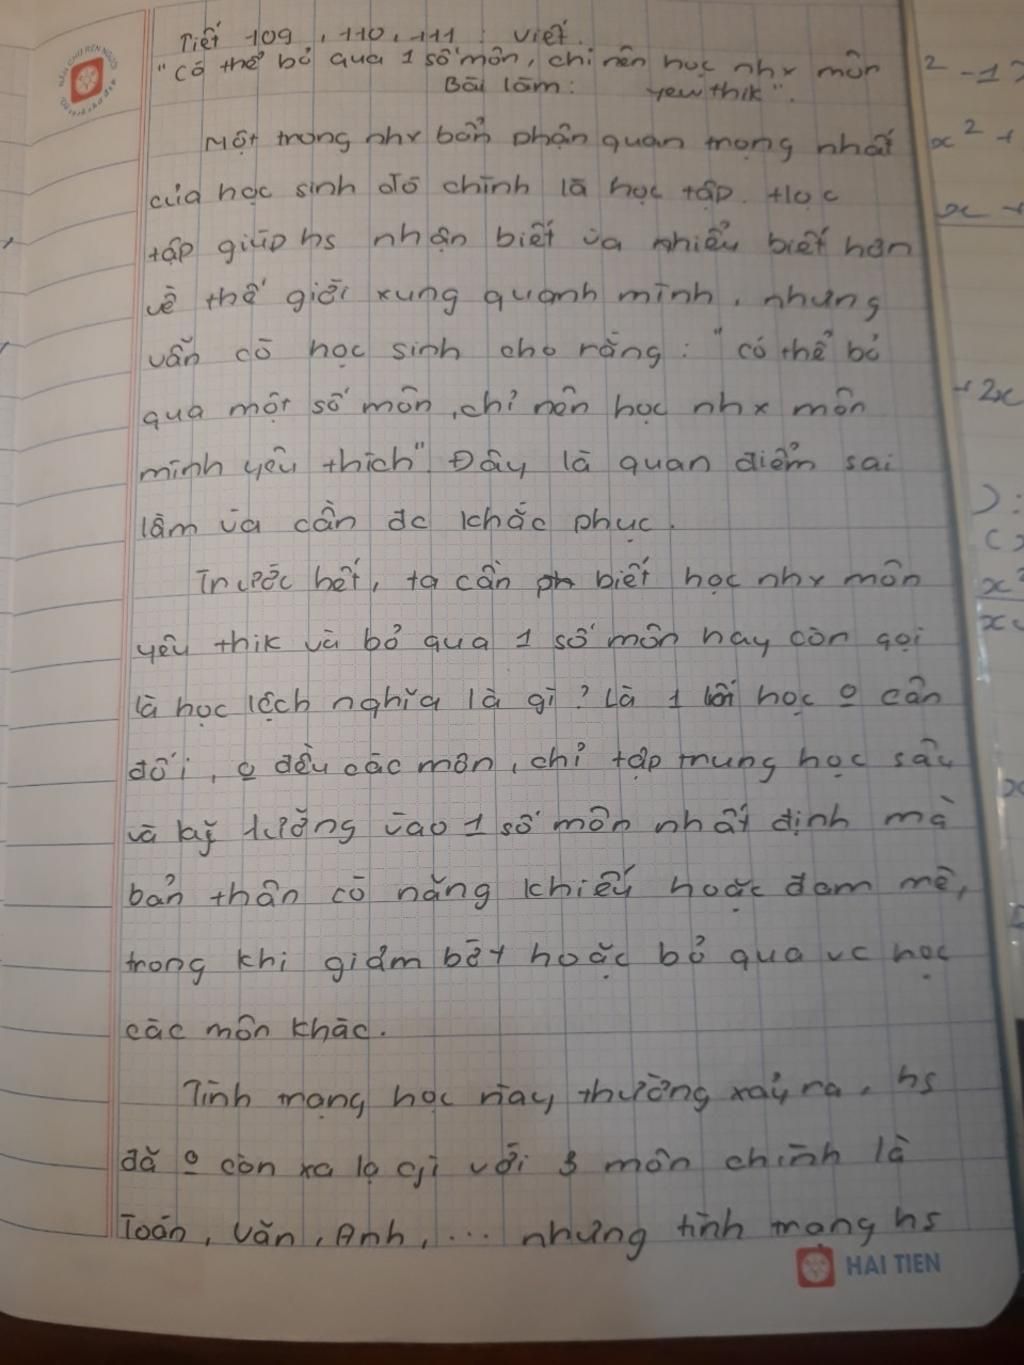 Tiết 109, 110, 111: viết.
"Có thể bỏ qua 1 số môn, chỉ nên học nhx môn
Bài làm: yew thik".
Một trong nhx bổn phận quan trọng nhất
của học sinh đó chính là học tập. Học
tập giúp hs nhận biết và nhiều biết hơn
về thế giới xung quanh mình, nhưng
vẫn có học sinh cho rằng: "có thể bỏ
qua một số môn, chỉ nên học nhx môn
mình yêu thích" Đây là quan điểm sai
lầm và cần đc khắc phục.
Trước hết, ta cần biết học nhx môn
yêu thik và bỏ qua 1 số môn hay còn gọi
là học lệch nghĩa là gì? Là 1 lối học o cân
đối, o đều các môn, chỉ tập trung học sâu
và kỹ lưỡng vào 1 số môn nhất định mà
bản thân có năng khiếu hoặc đam mê,
trong khi giảm bớt hoặc bỏ qua vc học
các môn khác.
Tình trạng học này thường xảy ra, hs
đã o còn xa lạ gì với 3 môn chính là
Toán, Văn, Anh, ... nhưng tình trạng hs
HAI TIEN
2 - 1
x² +
x -
+ 2x